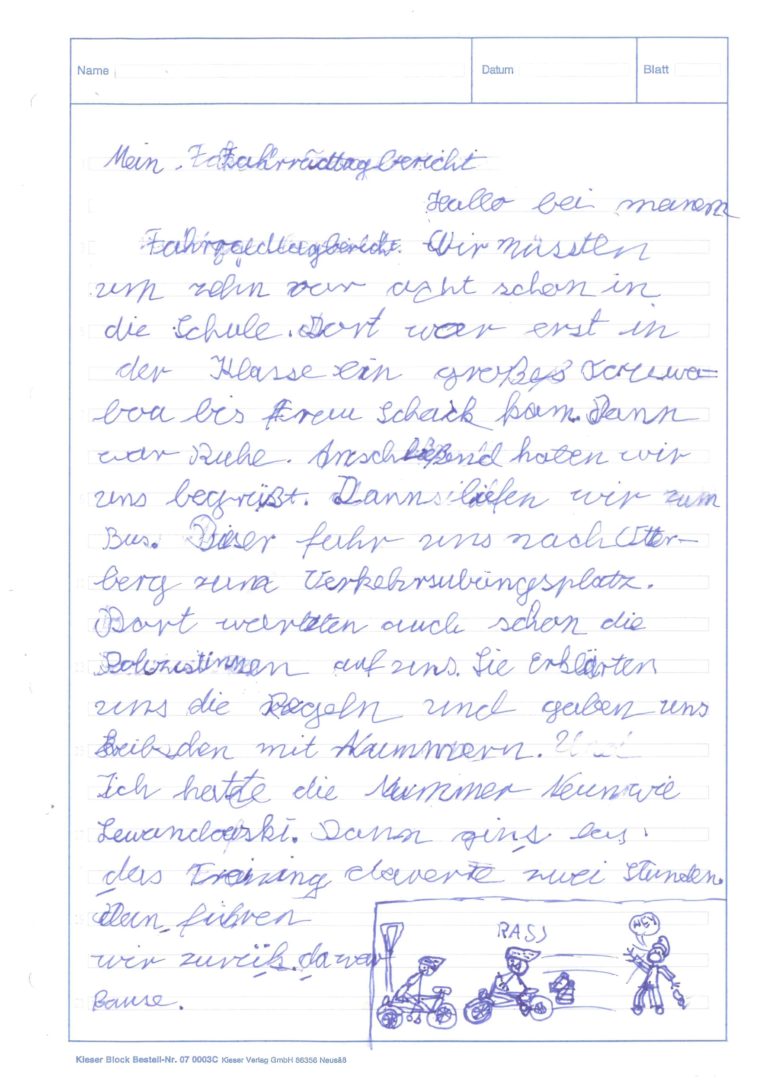 Name
Datum
Blatt
Mein Fahrradtagbericht
Hallo bei meinem
Fahrradtagbericht. Wir müssten
um zehn vor acht schon in
die Schule. Dort war erst in
der Klasse ein großes
bis Frau Schack kam. Dann
war Ruhe. Anschließend haten wir
uns begrüßt. Dann liefen wir zum
Bus. Dieser fuhr uns nach Otter-
berg zum Verkehrsübungsplatz.
Dort warteten auch schon die
Polizistinnen auf uns. Sie Erklärten
uns die Regeln und gaben uns
mit Nummern.
Ich hatte die Nummer Neun wie
Lewandoski. Dann gins los.
das Training dauerte zwei Stunden.
Dan führen
wir zurük. da war
Bause.
RASS
HEY
Kieser Block Bestell-Nr. 07 0003C Kieser Verlag GmbH 86356 Neusäß